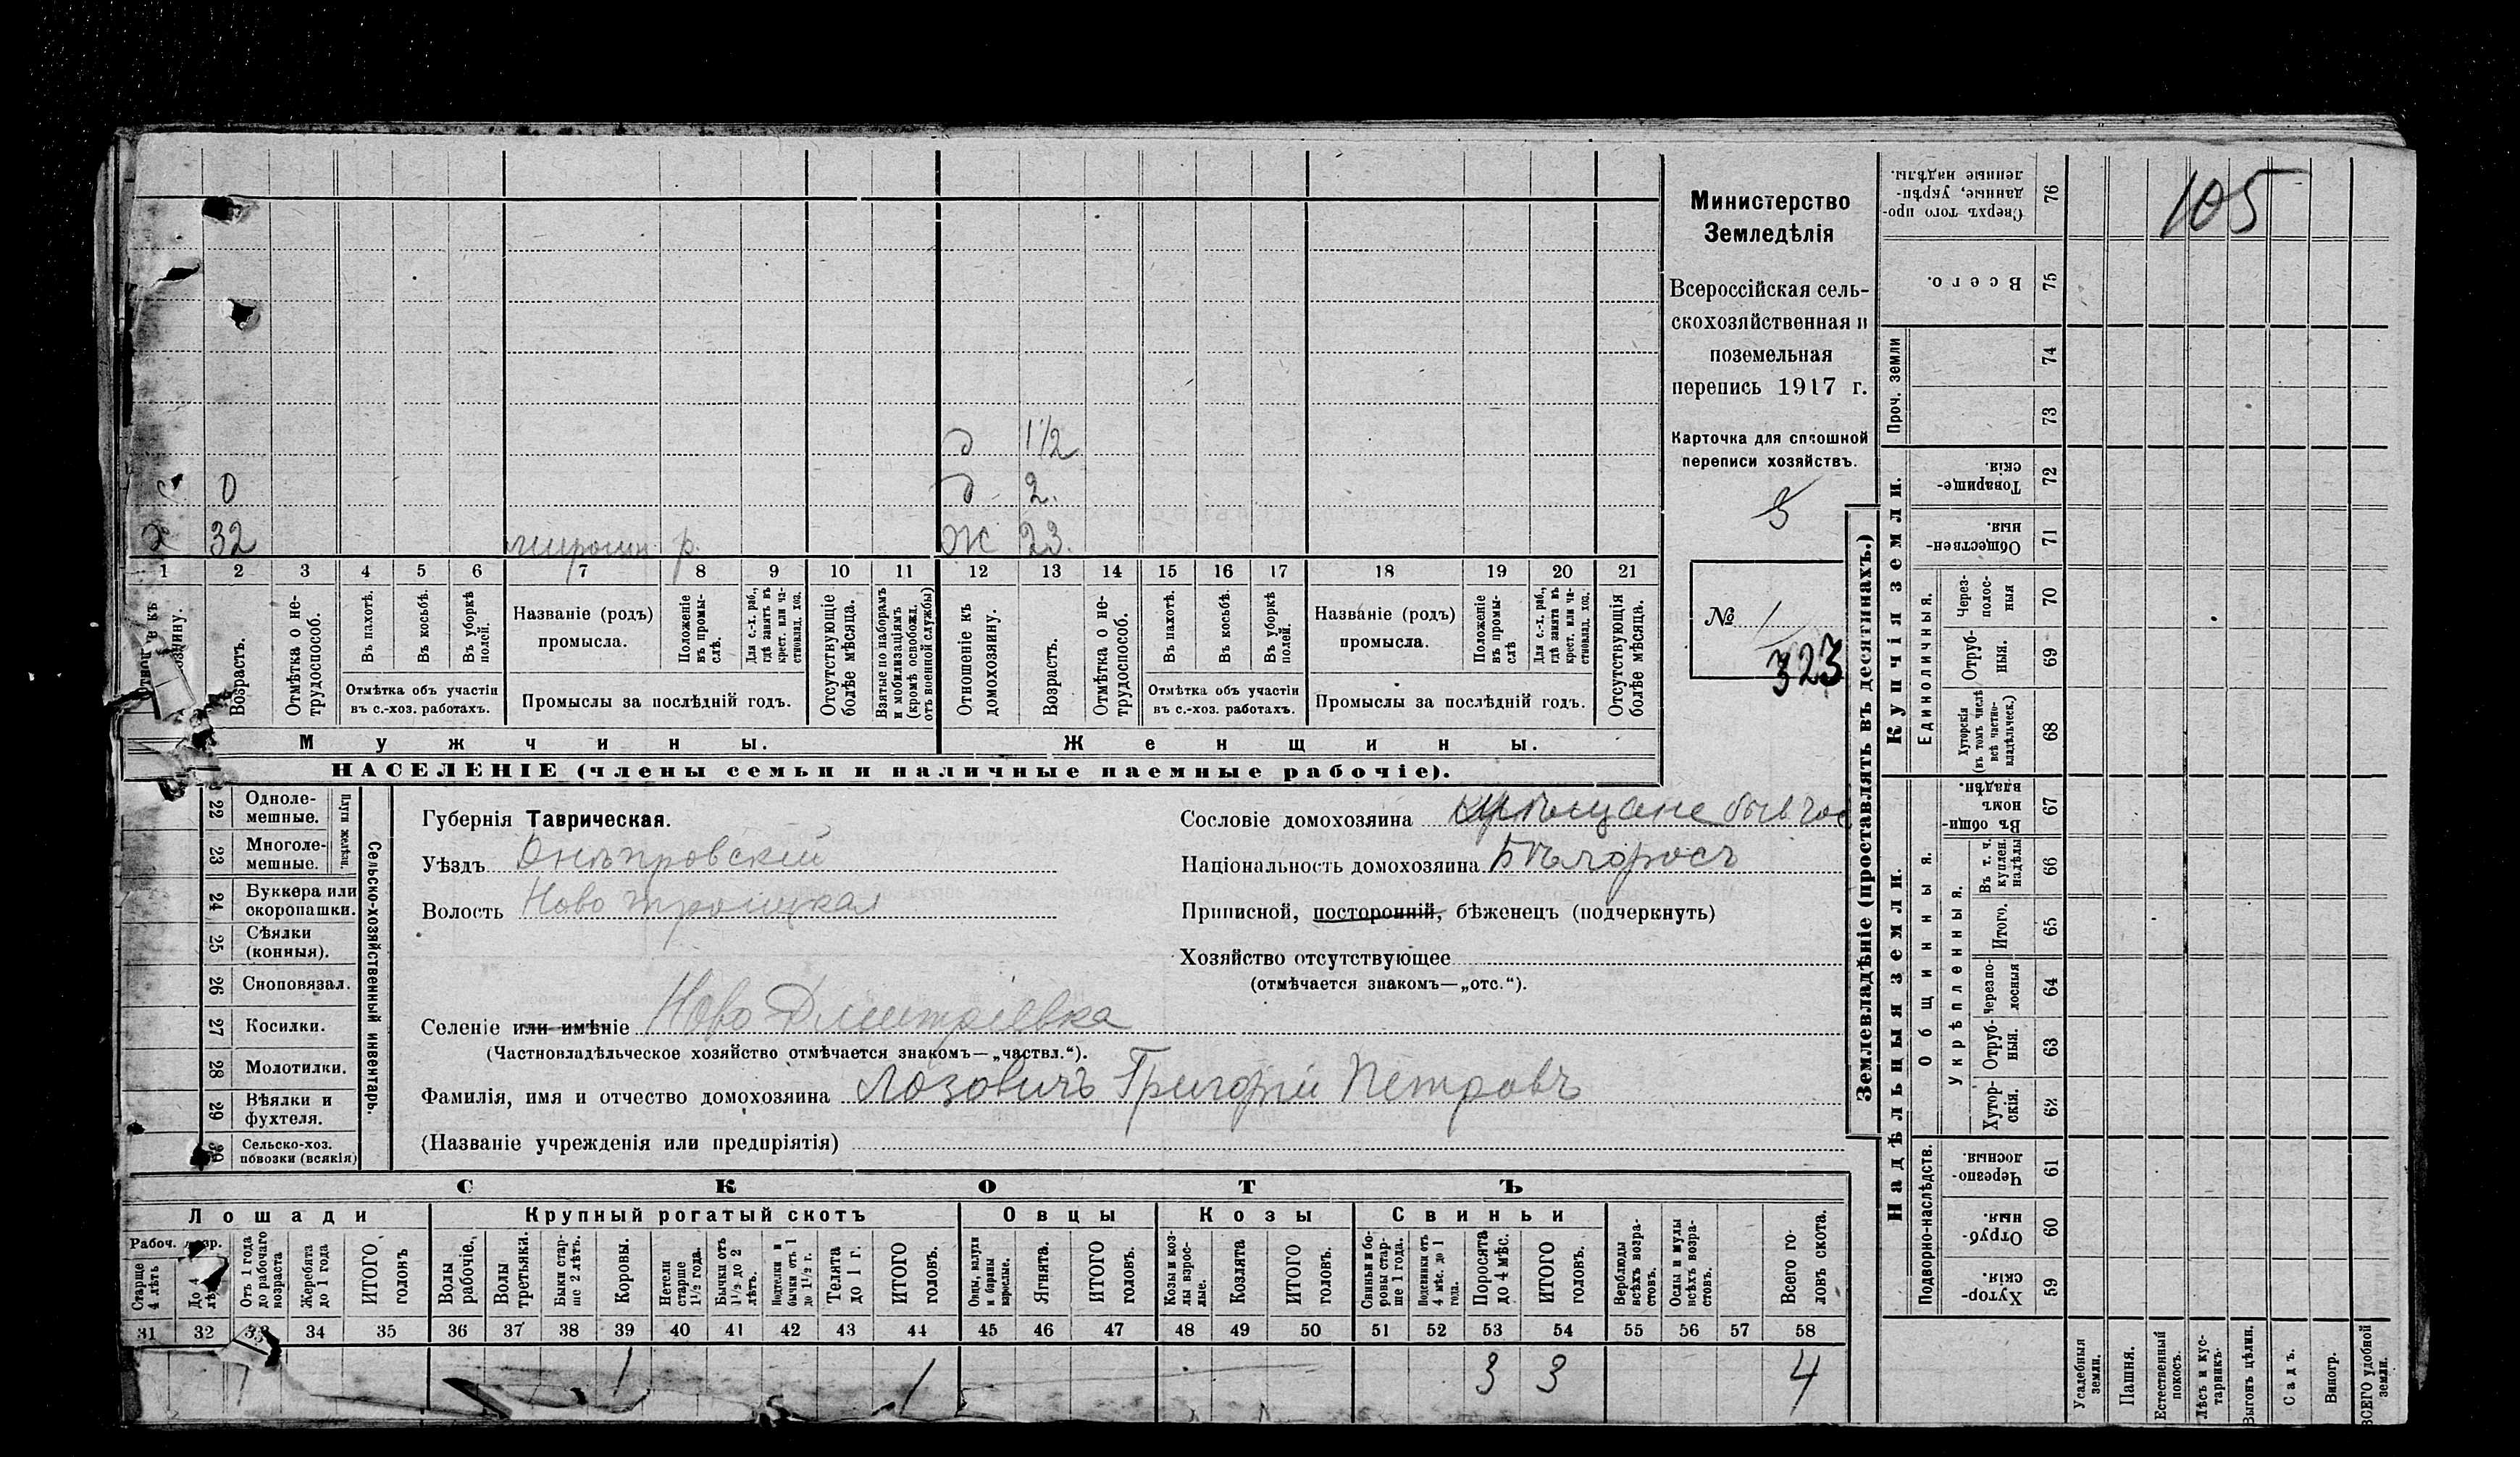 105
Министерство
Земледѣлія
Всероссійская сель-
скохозяйственная и
поземельная
перепись 1917 г.
Карточка для сплошной
переписи хозяйствъ.
3
№ 1
323
д 1½
0 д 2.
х 32 р. Ж 23.
1 2 3 4 5 6 7 8 9 10 11 12 13 14 15 16 17 18 19 20 21
Возрастъ.
Отмѣтка о не-
трудоспособ.
Въ пахотѣ.
Въ косьбѣ.
Въ уборкѣ
полей.
Отмѣтка объ участіи
въ с.-хоз. работахъ.
Названіе (родъ)
промысла.
Положеніе
въ промы-
слѣ.
Для с.-х. раб.,
гдѣ занятъ въ
крест. или ча-
стновлад. хоз.
Промыслы за послѣдній годъ.
Отсутствующіе
болѣе мѣсяца.
Взятые по наборамъ
и мобилизаціямъ
(кромѣ освобожд.
отъ военной службы)
Отношеніе къ
домохозяину.
Возрастъ.
Отмѣтка о не-
трудоспособ.
Въ пахотѣ.
Въ косьбѣ.
Въ уборкѣ
полей.
Отмѣтка объ участіи
въ с.-хоз. работахъ.
Названіе (родъ)
промысла.
Положеніе
въ промы-
слѣ
Для с.-х. раб.,
гдѣ занята въ
крест. или ча-
стновлад. хоз.
Промыслы за послѣдній годъ.
Отсутствующія
болѣе мѣсяца.
Мужчины.
Женщины.
НАСЕЛЕНІЕ (члены семьи и наличные наемные рабочіе).
22 Одноле-
мешные.
23 Многоле-
мешные.
Плуги желѣзн.
24 Буккера или
скоропашки.
25 Сѣялки
(конныя).
26 Сноповязал.
27 Косилки.
28 Молотилки.
29 Вѣялки и
фухтеля.
30 Сельско-хоз.
повозки (всякія)
Сельско-хозяйственный инвентарь.
Губернія Таврическая.
Уѣздъ Днѣпровскій
Волость Ново Троицкая
Сословіе домохозяина
Національность домохозяина Бѣлоросъ
Приписной, посторонній, бѣженецъ (подчеркнуть)
Хозяйство отсутствующее
(отмѣчается знакомъ—„отс.“).
Селеніе или имѣніе Ново Дмитріевка
(Частновладѣльческое хозяйство отмѣчается знакомъ—„частвл.“).
Фамилія, имя и отчество домохозяина Лозовичъ Григорій Петровъ
(Названіе учрежденія или предпріятія)
СКОТЪ
Лошади
Крупный рогатый скотъ
Овцы
Козы
Свиньи
Рабоч.
Старше
4 лѣтъ
До 4
Отъ 1 года
до рабочаго
возраста
Жеребята
до 1 года
ИТОГО
головъ
Волы
рабочіе.
Волы
третьяки.
Быки стар-
ше 2 лѣтъ.
Коровы.
Нетели
старше
1½ года.
Бычки отъ
1½ до 2
лѣтъ.
Подтелки и
бычки отъ 1
до 1½ г.
Телята
до 1 г.
ИТОГО
головъ.
Овцы, валухи
и бараны
взрослые.
Ягнята.
ИТОГО
головъ.
Козы и коз-
лы взрос-
лые.
Козлята
ИТОГО
головъ.
Свиньи и бо-
ровы стар-
ше 1 года.
Подсвинки отъ
4 мѣс. до 1
года.
Поросята
до 4 мѣс.
ИТОГО
головъ.
Верблюды
всѣхъ возра-
стовъ.
Ослы и мулы
всѣхъ возра-
стовъ.
Всего го-
ловъ скота.
31 32 33 34 35 36 37 38 39 40 41 42 43 44 45 46 47 48 49 50 51 52 53 54 55 56 57 58
1 1 3 3 4
Землевладѣніе (проставлять въ десятинахъ.)
Купчія земли.
Надѣльныя земли.
Сверхъ того про-
данные, укрѣп-
ленные надѣлы.
76
Всего.
75
Проч. земли
74
73
Товарище-
скія.
72
Обществен-
ныя
71
Единоличныя.
Через-
полос-
ныя
70
Отруб-
ныя.
69
Хуторскія
(въ томъ числѣ
всѣ частно-
владѣльческ.)
68
Въ общи-
номъ
владѣн.
67
Общинныя.
Въ т. ч.
куплен.
надѣлы
66
Укрѣпленныя.
Итого.
65
Черезпо-
лосныя
64
Отруб-
ныя.
63
Хутор-
скія.
62
Подворно-наслѣдств.
Черезпо-
лосныя.
61
Отруб-
ныя.
60
Хутор-
скія.
59
Усадебныя
земли.
Пашня.
Естественный
покосъ.
Лѣсъ и кус-
тарникъ.
Выгонъ цѣлин.
Садъ.
Виногр.
ВСЕГО удобной
земли.